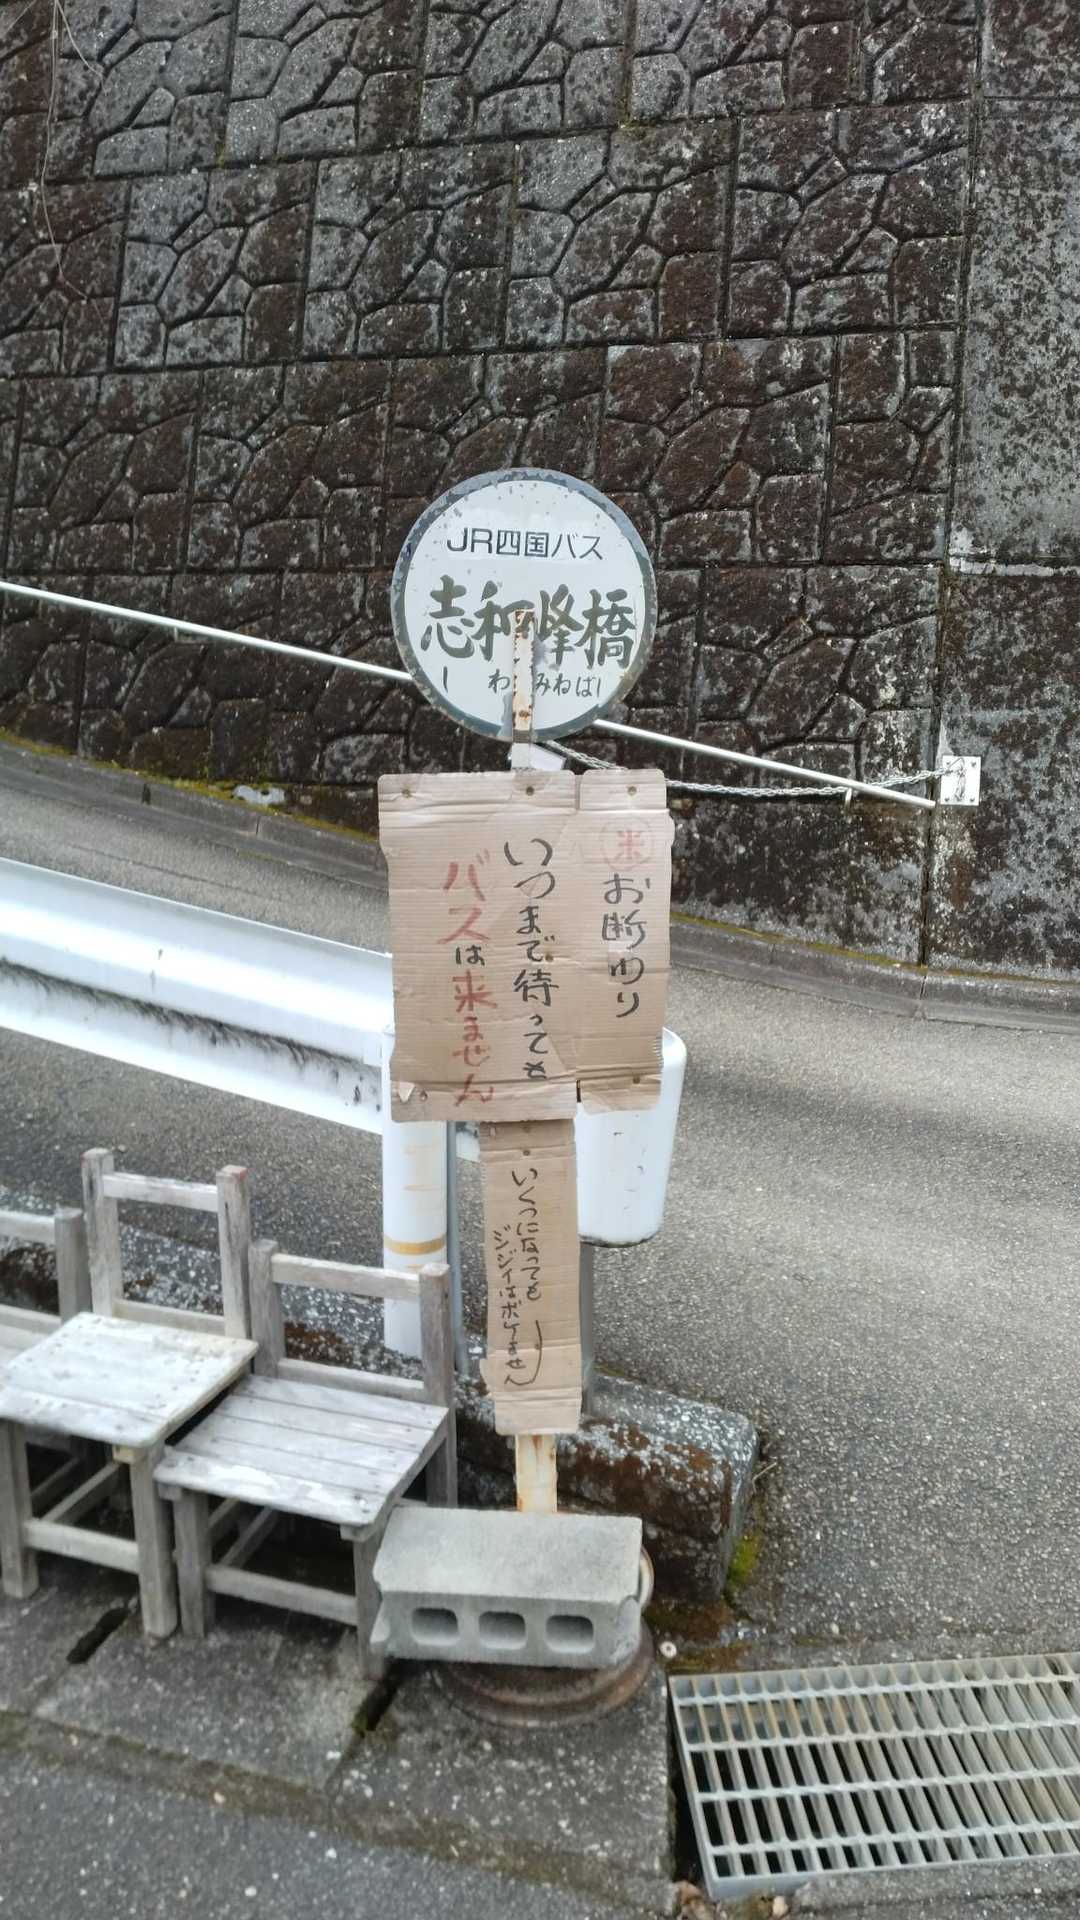 JR四国バス
志和峰橋
しわみねばし
米
お断わり
いつまで待っても
バスは来ません
いくつになっても
ジジイはボケません